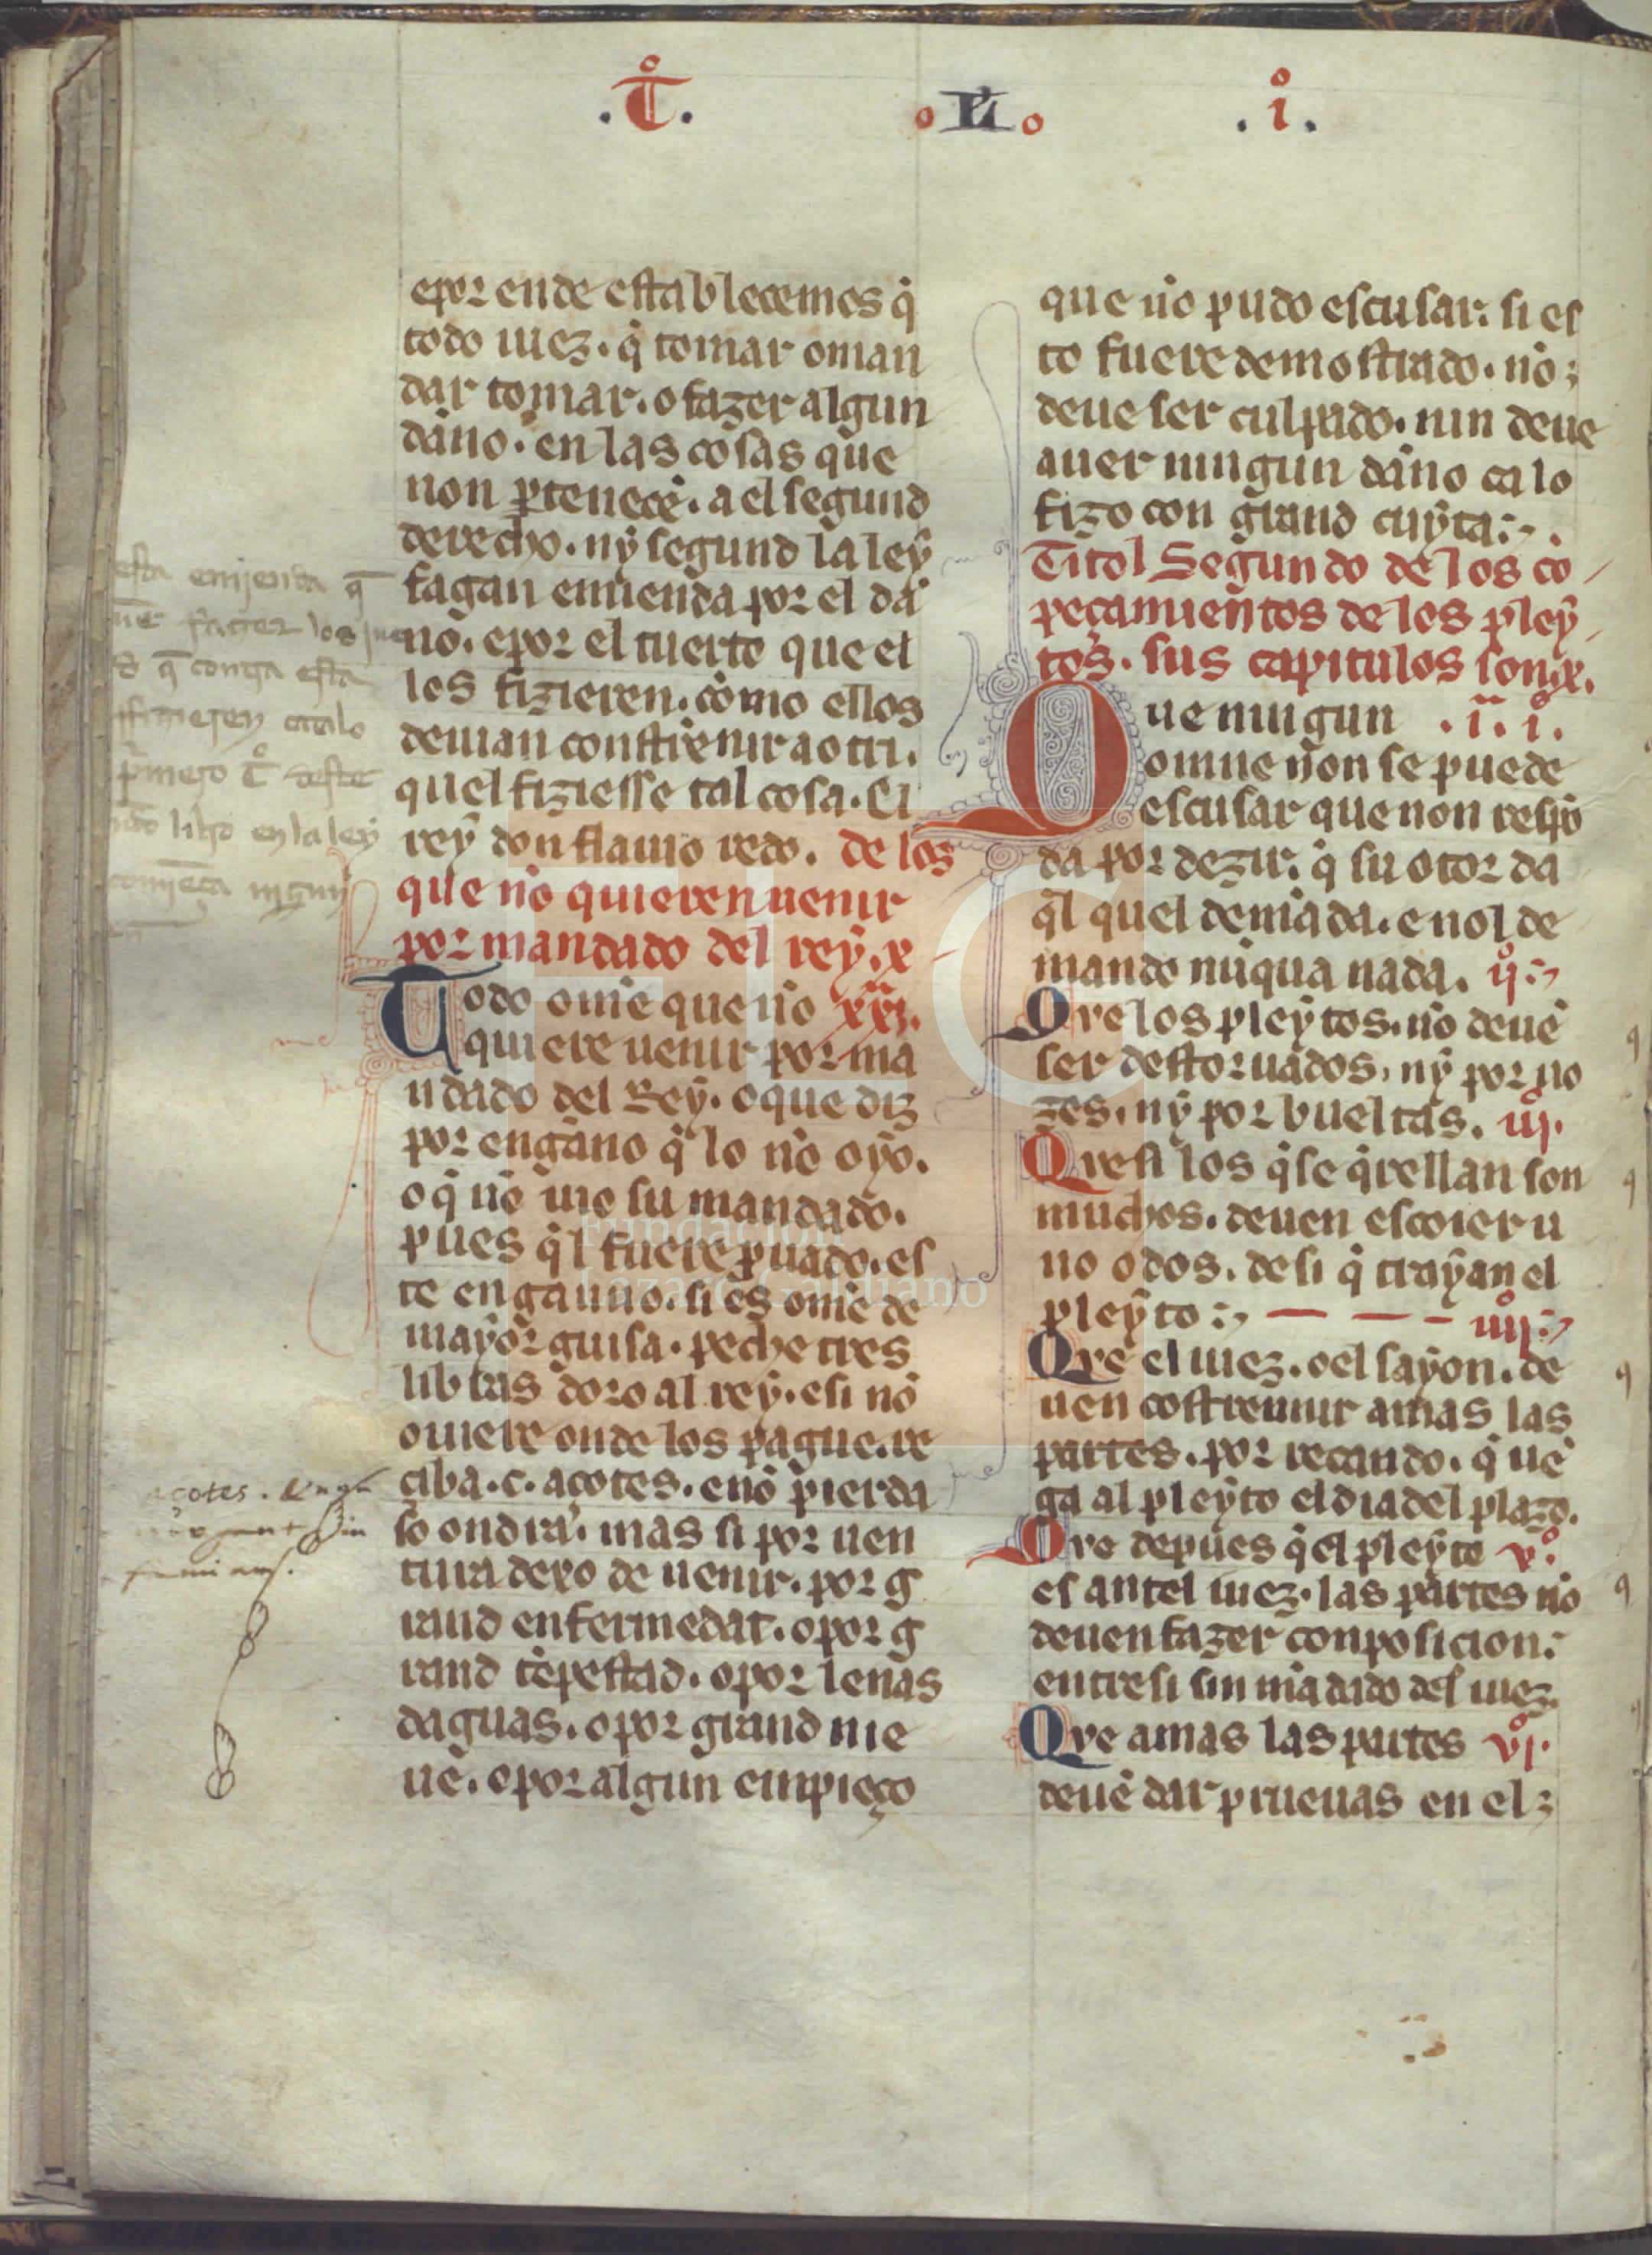 .T̊.
L̊
.i̊.
epor ende establecemos q̇
todo iuez. q̇ tomar o man
dar tomar. o fazer algun
dãno. en las cosas que
non ꝑtenecẽ. a el segund
derecho. nỹ segund la leẏ
fagan emienda por el dã
no. epor el tuerto que el
les fizieren. cõmo ellos
deuian constrenir a otri.
quel fiziesse tal cosa. El
reẏ don flauio redo. de los
que nõ quieren uenir
por mandado del reẏ. x
Todo om̃e que nõ xxi.
quiere uenir por ma
ndado del Reẏ. o que diz
por engãno q̇ lo nõ oẏo.
o q̇ nõ uio su mandado.
pues q̇l fuere ꝑuado. es
te enganno. si es om̃e de
maẏor guisa. peche tres
libras doro al reẏ. e si nõ
ouiere onde los pague. re
ciba .c. açotes. e nõ pierda
so ondra. mas si por uen
tura dexo de uenir. por g
rand enfermedat. o por g
rand tẽpestad. o por lenas
daguas. o por grand nie
ue. o por algun empieço
que nõ pudo escusar: si es
to fuere demostrado. nõ
deue ser culpado. nin deue
auer ningun dãno ca lo
fizo con grand cuẏta:~.
Titol Segundo de los cõ
peçamientos de los pleẏ
tos. sus capitulos son .x.
Que ningun .ii. i̊.
omne non se puede
escusar que non respõ
da por dezir. q̇ su otor da
q̇l quel demãda. e nol de
mando nũqua nada. ii̊:~
Que los pleẏtos. nõ deuẽ
ser destoruados. nỹ por uo
zes. nỹ por bueltas. iij̊.
Que si los q̇ se q̇rellan son
muchos. deuen escoier u
no o dos. de si q̇ traẏan el
pleẏto:~ — — — iiij̊:~
Que el iuez. o el saẏon. de
uen costrennir amas las
partes. por recaudo. q̇ uẽ
ga al pleẏto el dia del plazo.
Que depues q̇ el pleẏto v̊.
es antel iuez. las partes nõ
deuen fazer conposicion:
entre si sin mãdado del iuez.
Que amas las partes vj̊.
deuẽ dar prueuas en el
esta emjenda q̃
fazer los jue
q̃ contra esta
fizieren catalo
pˢmero T̊ deste
libro en la leẏ
comjeça njgun
açotes.
Fundación
Lázaro Galdiano
FLG